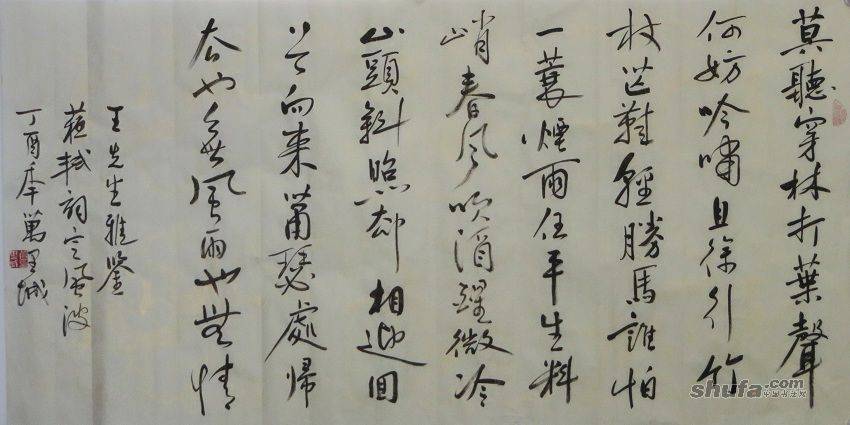 莫聽穿林打葉聲
何妨吟嘯且徐行竹
杖芒鞋輕勝馬誰怕
一蓑煙雨任平生料
峭春風吹酒醒微冷
山頭斜照却相迎回
首向來蕭瑟處歸
去也無風雨也無情
王先生雅鑒
蘇軾詞定風波
丁酉萬里城
shufa.com
中国书法网